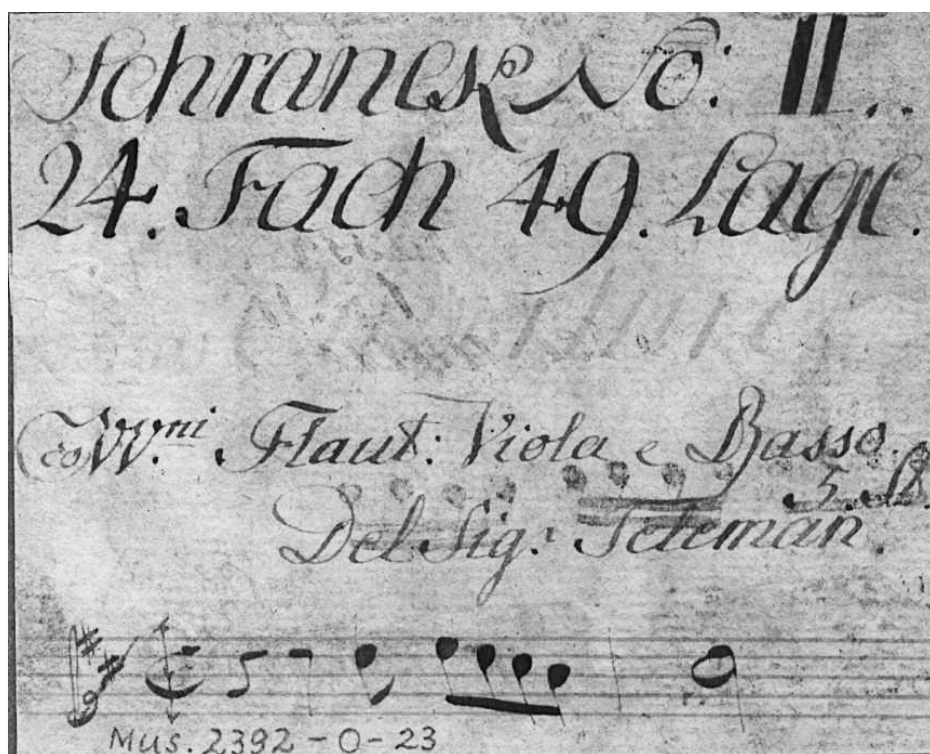 Schranck No: II.
24. Fach 49. Lage.
co VV.ni Flaut: Viola e Basso.
Del Sig.r Teleman.
Mus. 2392-O-23